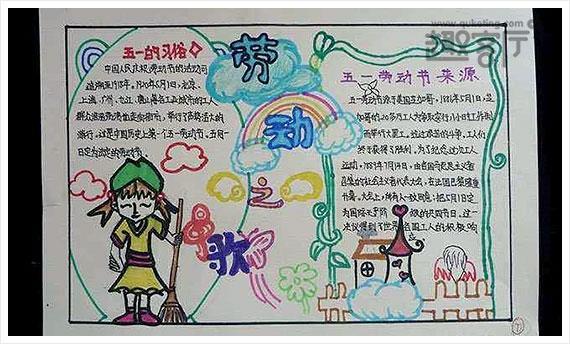 www.quketing.com
趣客厅
五一的习俗
中国人民庆祝劳动节的活动可
追溯至1918年。1920年5月1日,北京、
上海、广州、九江、唐山等各工业城市的工人
群众浩浩荡荡地走向街市、举行了声势浩大的
游行。这是中国历史上第一个五一劳动节。五月一
日定为法定的劳动节。
劳
动
之
歌
五一劳动节来源
五一劳动节源于美国芝加哥,1886年5月1日,芝
加哥的20多万工人为争取实行八小时工作制
而举行大罢工。经过艰苦的斗争,工人们
终于获得了胜利。为了纪念这次工人
运动,1889年7月14日,由各国马克思主义者
召集的社会主义者代表大会,在法国巴黎隆重
开幕。大会上,所有人一致同意:把5月1日定
为国际无产阶级的共同节日。这一
决议得到了世界各国工人的积极响